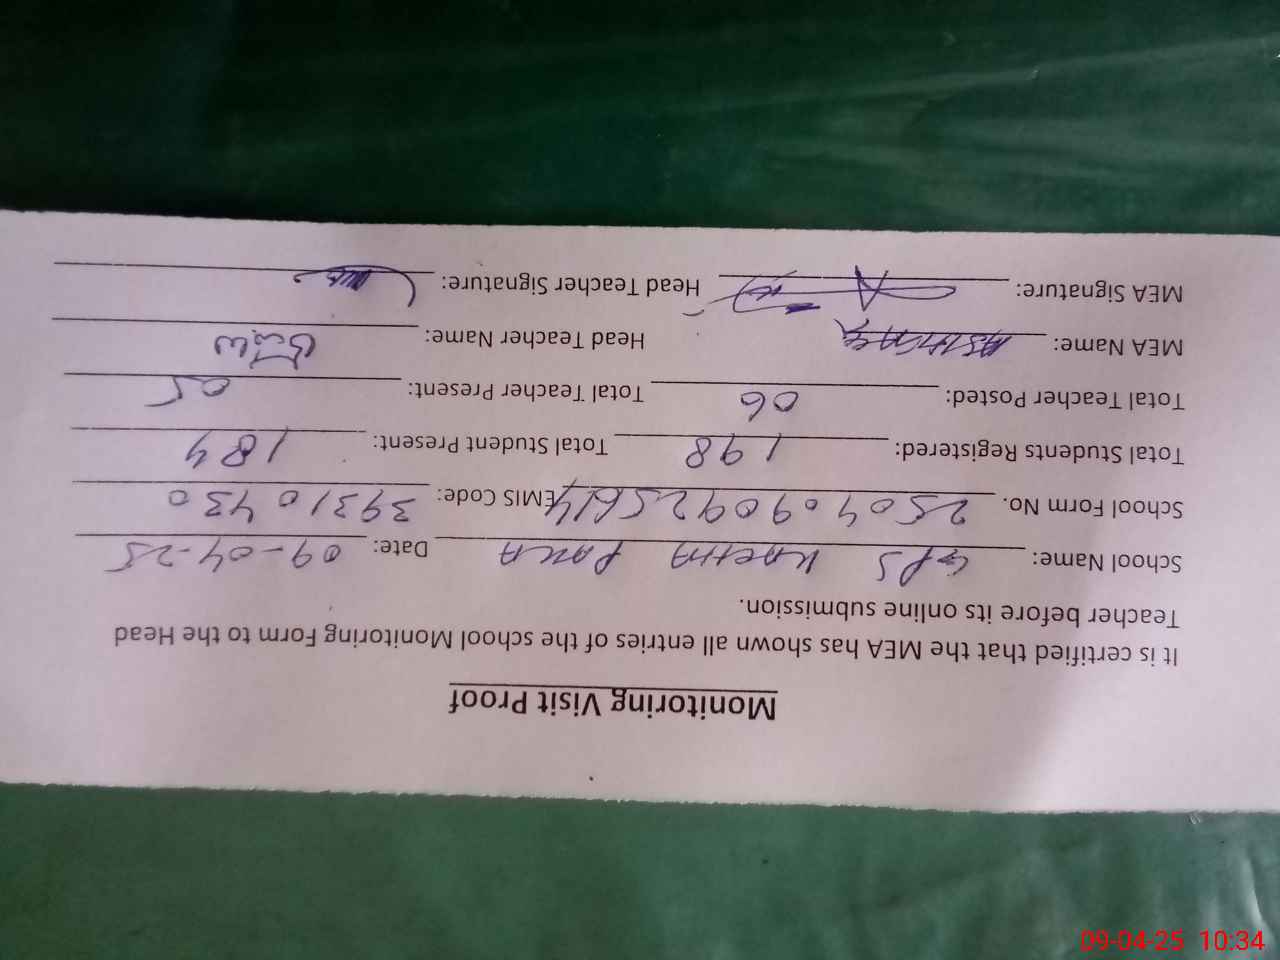 Monitoring Visit Proof
It is certified that the MEA has shown all entries of the school Monitoring Form to the Head
Teacher before its online submission.
School Name: GPS Kacha Paka Date: 09-04-25
School Form No. 2504090925614 EMIS Code: 39310430
Total Students Registered: 198 Total Student Present: 184
Total Teacher Posted: 06 Total Teacher Present: 05
MEA Name: Head Teacher Name:
MEA Signature: Head Teacher Signature:
09-04-25 10:34